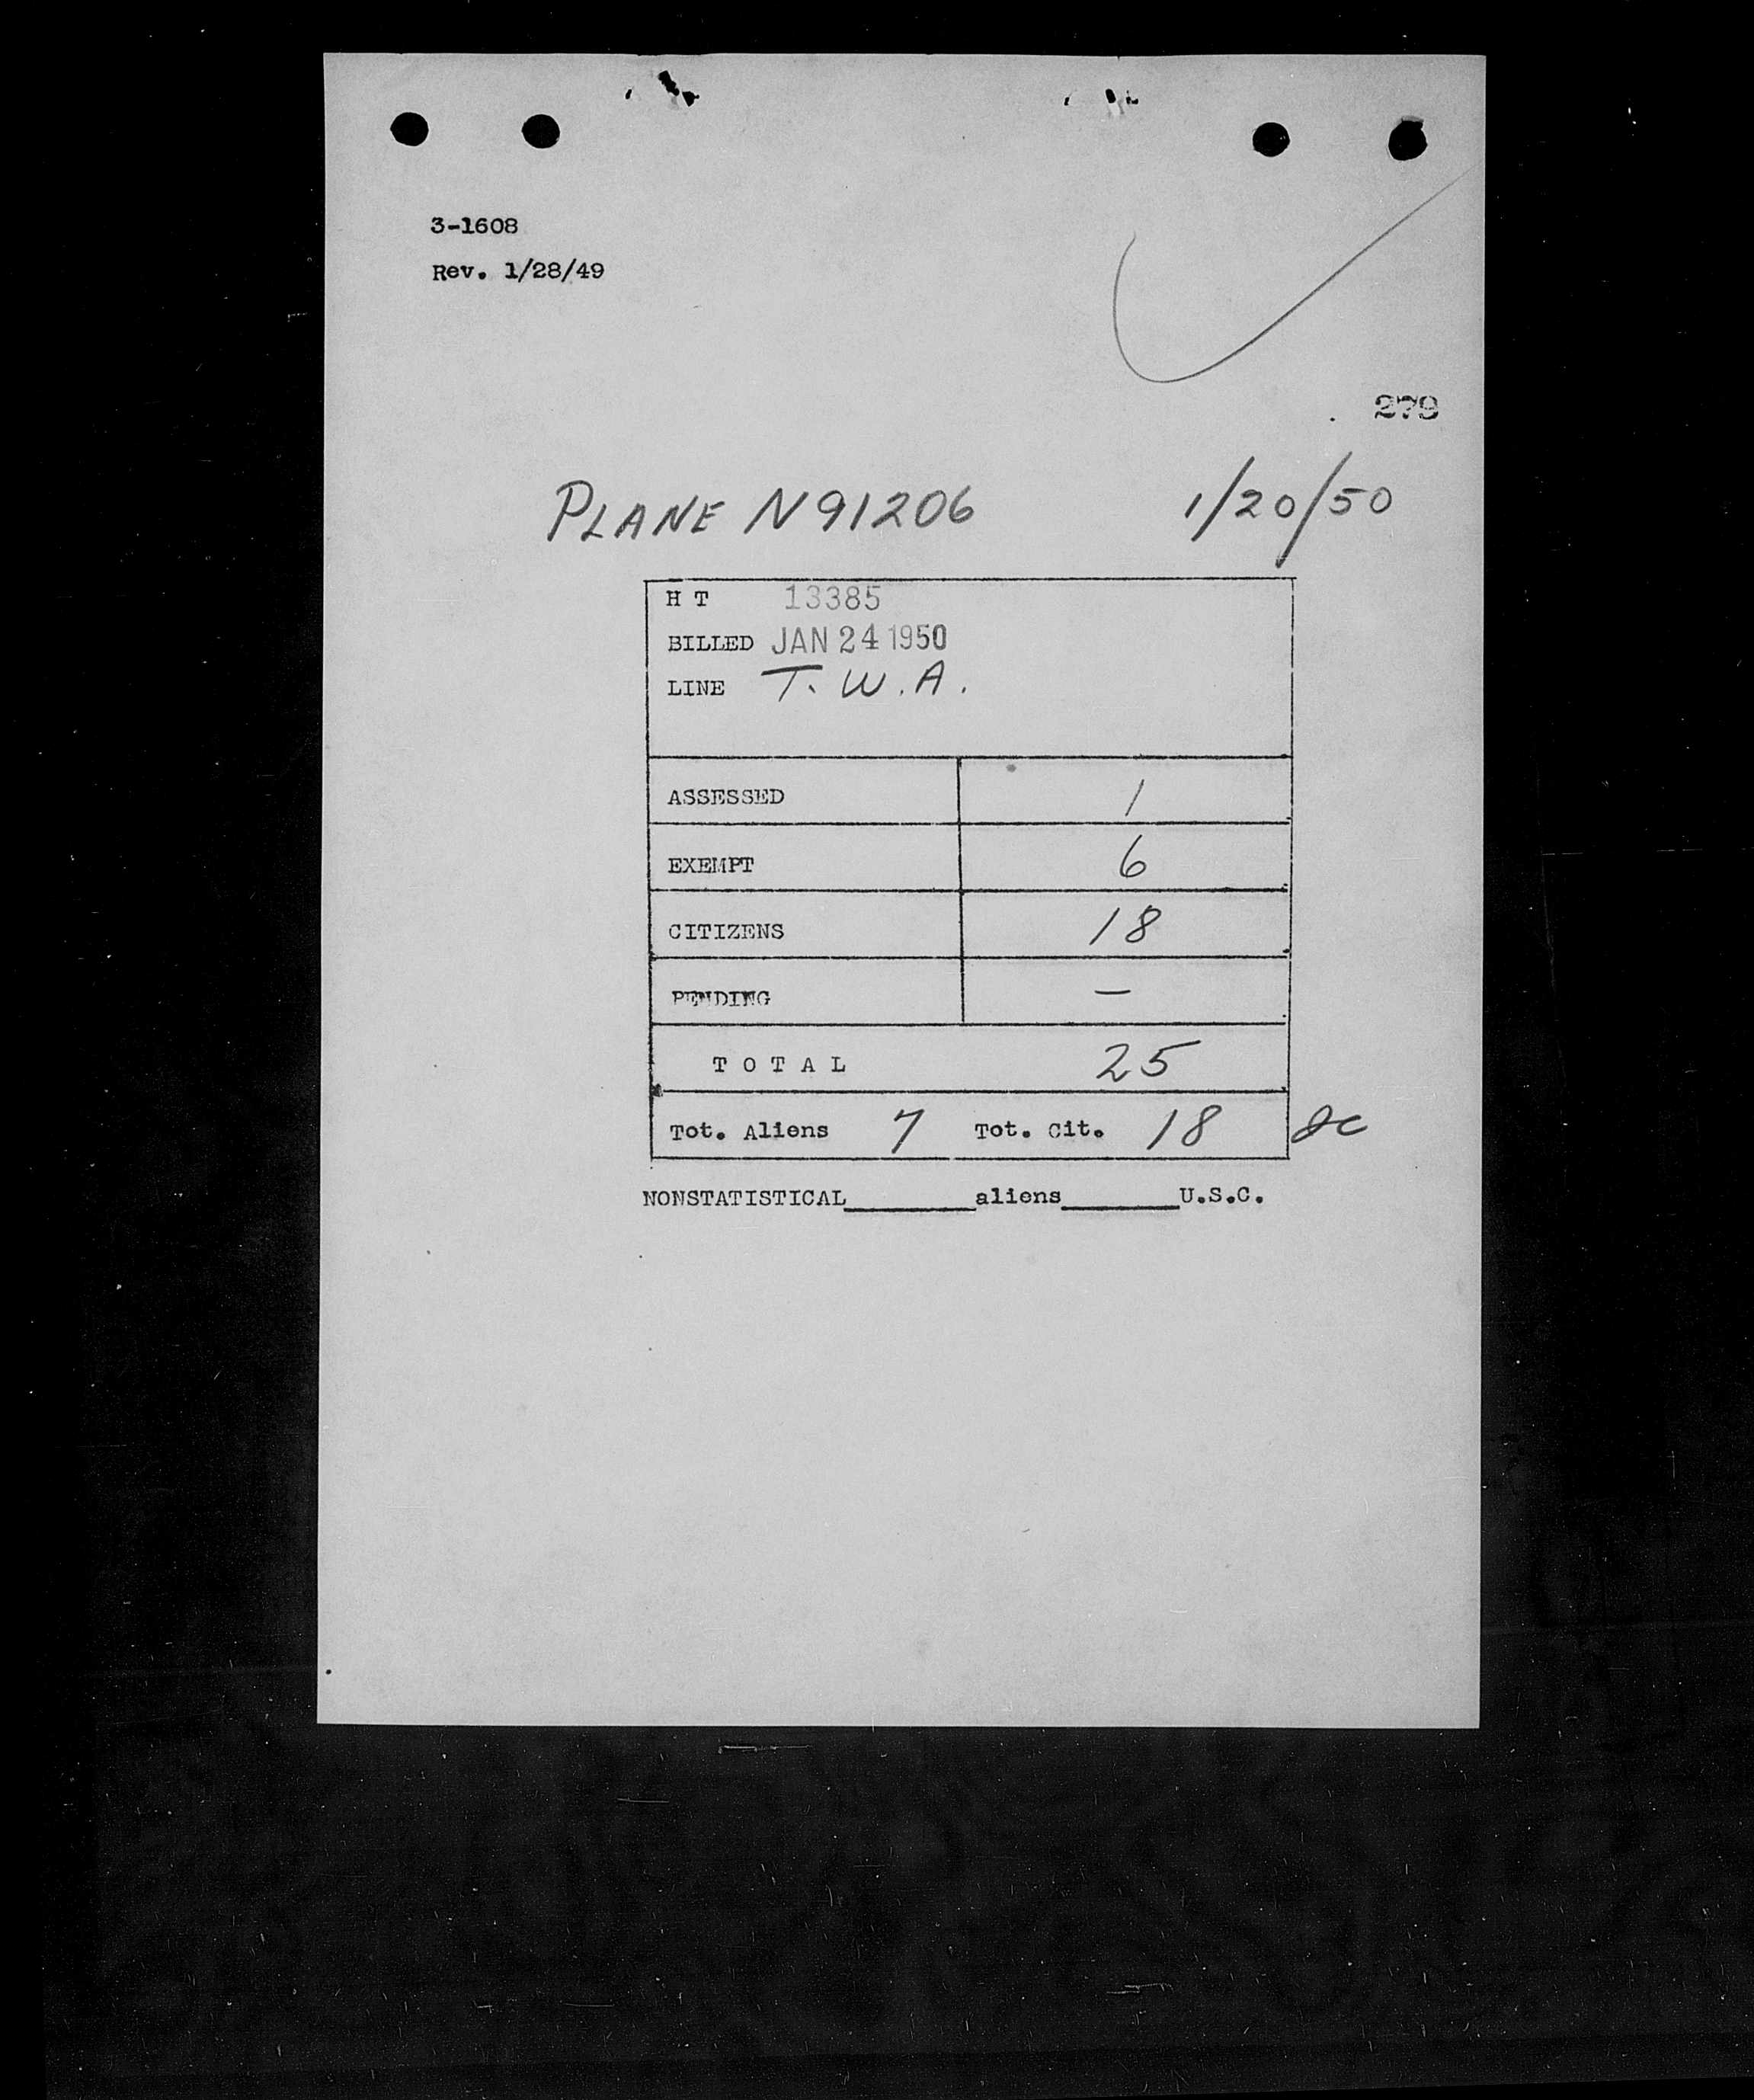 3-1608
Rev. 1/28/49
279
PLANE N91206 1/20/50
H T 13385
BILLED JAN 24 1950
LINE T.W.A.
ASSESSED 1
EXEMPT 6
CITIZENS 18
PENDING —
T O T A L 25
Tot. Aliens 7 Tot. Cit. 18
NONSTATISTICAL________aliens________U.S.C.